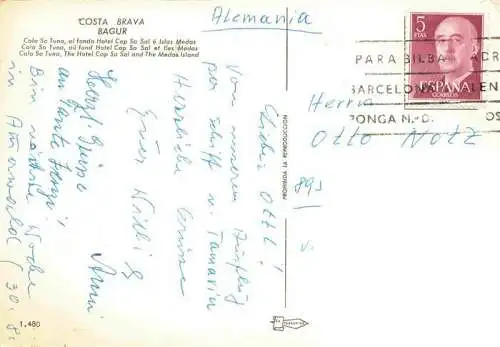 COSTA BRAVA
BAGUR
Cala Sa Tuna, al fondo Hotel Cap Sa Sal é Islas Medas
Cala Sa Tuna, au fond Hotel Cap Sa Sal et îles Medas
Cala Sa Tuna, The Hotel Cap Sa Sal and The Medas Island
Alemania
5
PTAS
ESPAÑA
CORREOS
PARA BILBA
BARCELONA
PONGA N.-D.
Herrn
Otto Notz
Lieber Ottl!
Vom unserem Ausflug
per Schiff v. Tamariu
Herzliche Grüsse
Euer Willi &
Herzl. Grüsse
an Tante
Anni
Bin nächste Woche
in (30.8.
1.480